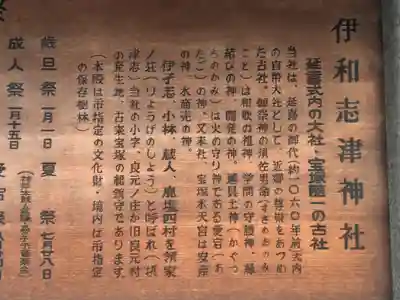 伊和志津神社
延喜式内の大社・宝塚随一の古社
当社は、延喜の御代(約一〇六〇年前)大内
の官幣大社として、近郷の尊崇をあつめ
た古社。御祭神の須佐男命(すさのおのみ
こと)は和歌の祖神、学問の守護神、縁
結びの神、開発の神。迦具土神(かぐつ
ちのかみ)は火の守り神である愛宕(あ
たご)の神。又末社、宝塚水天宮は安産
の神、水商売の神。
伊孑志、小林、蔵人、鹿塩四村を領家
ノ荘(りょうげのしょう)と呼ばれ(頃
津志)当社の小字、良元ノ庄が旧良元村
の発生地。古来宝塚の総鎮守であります。
(本殿は市指定の文化財、境内は市指定
の保存樹林)
歳旦祭 一月一日 夏 祭 七月廿八日
成人祭 一月十五日